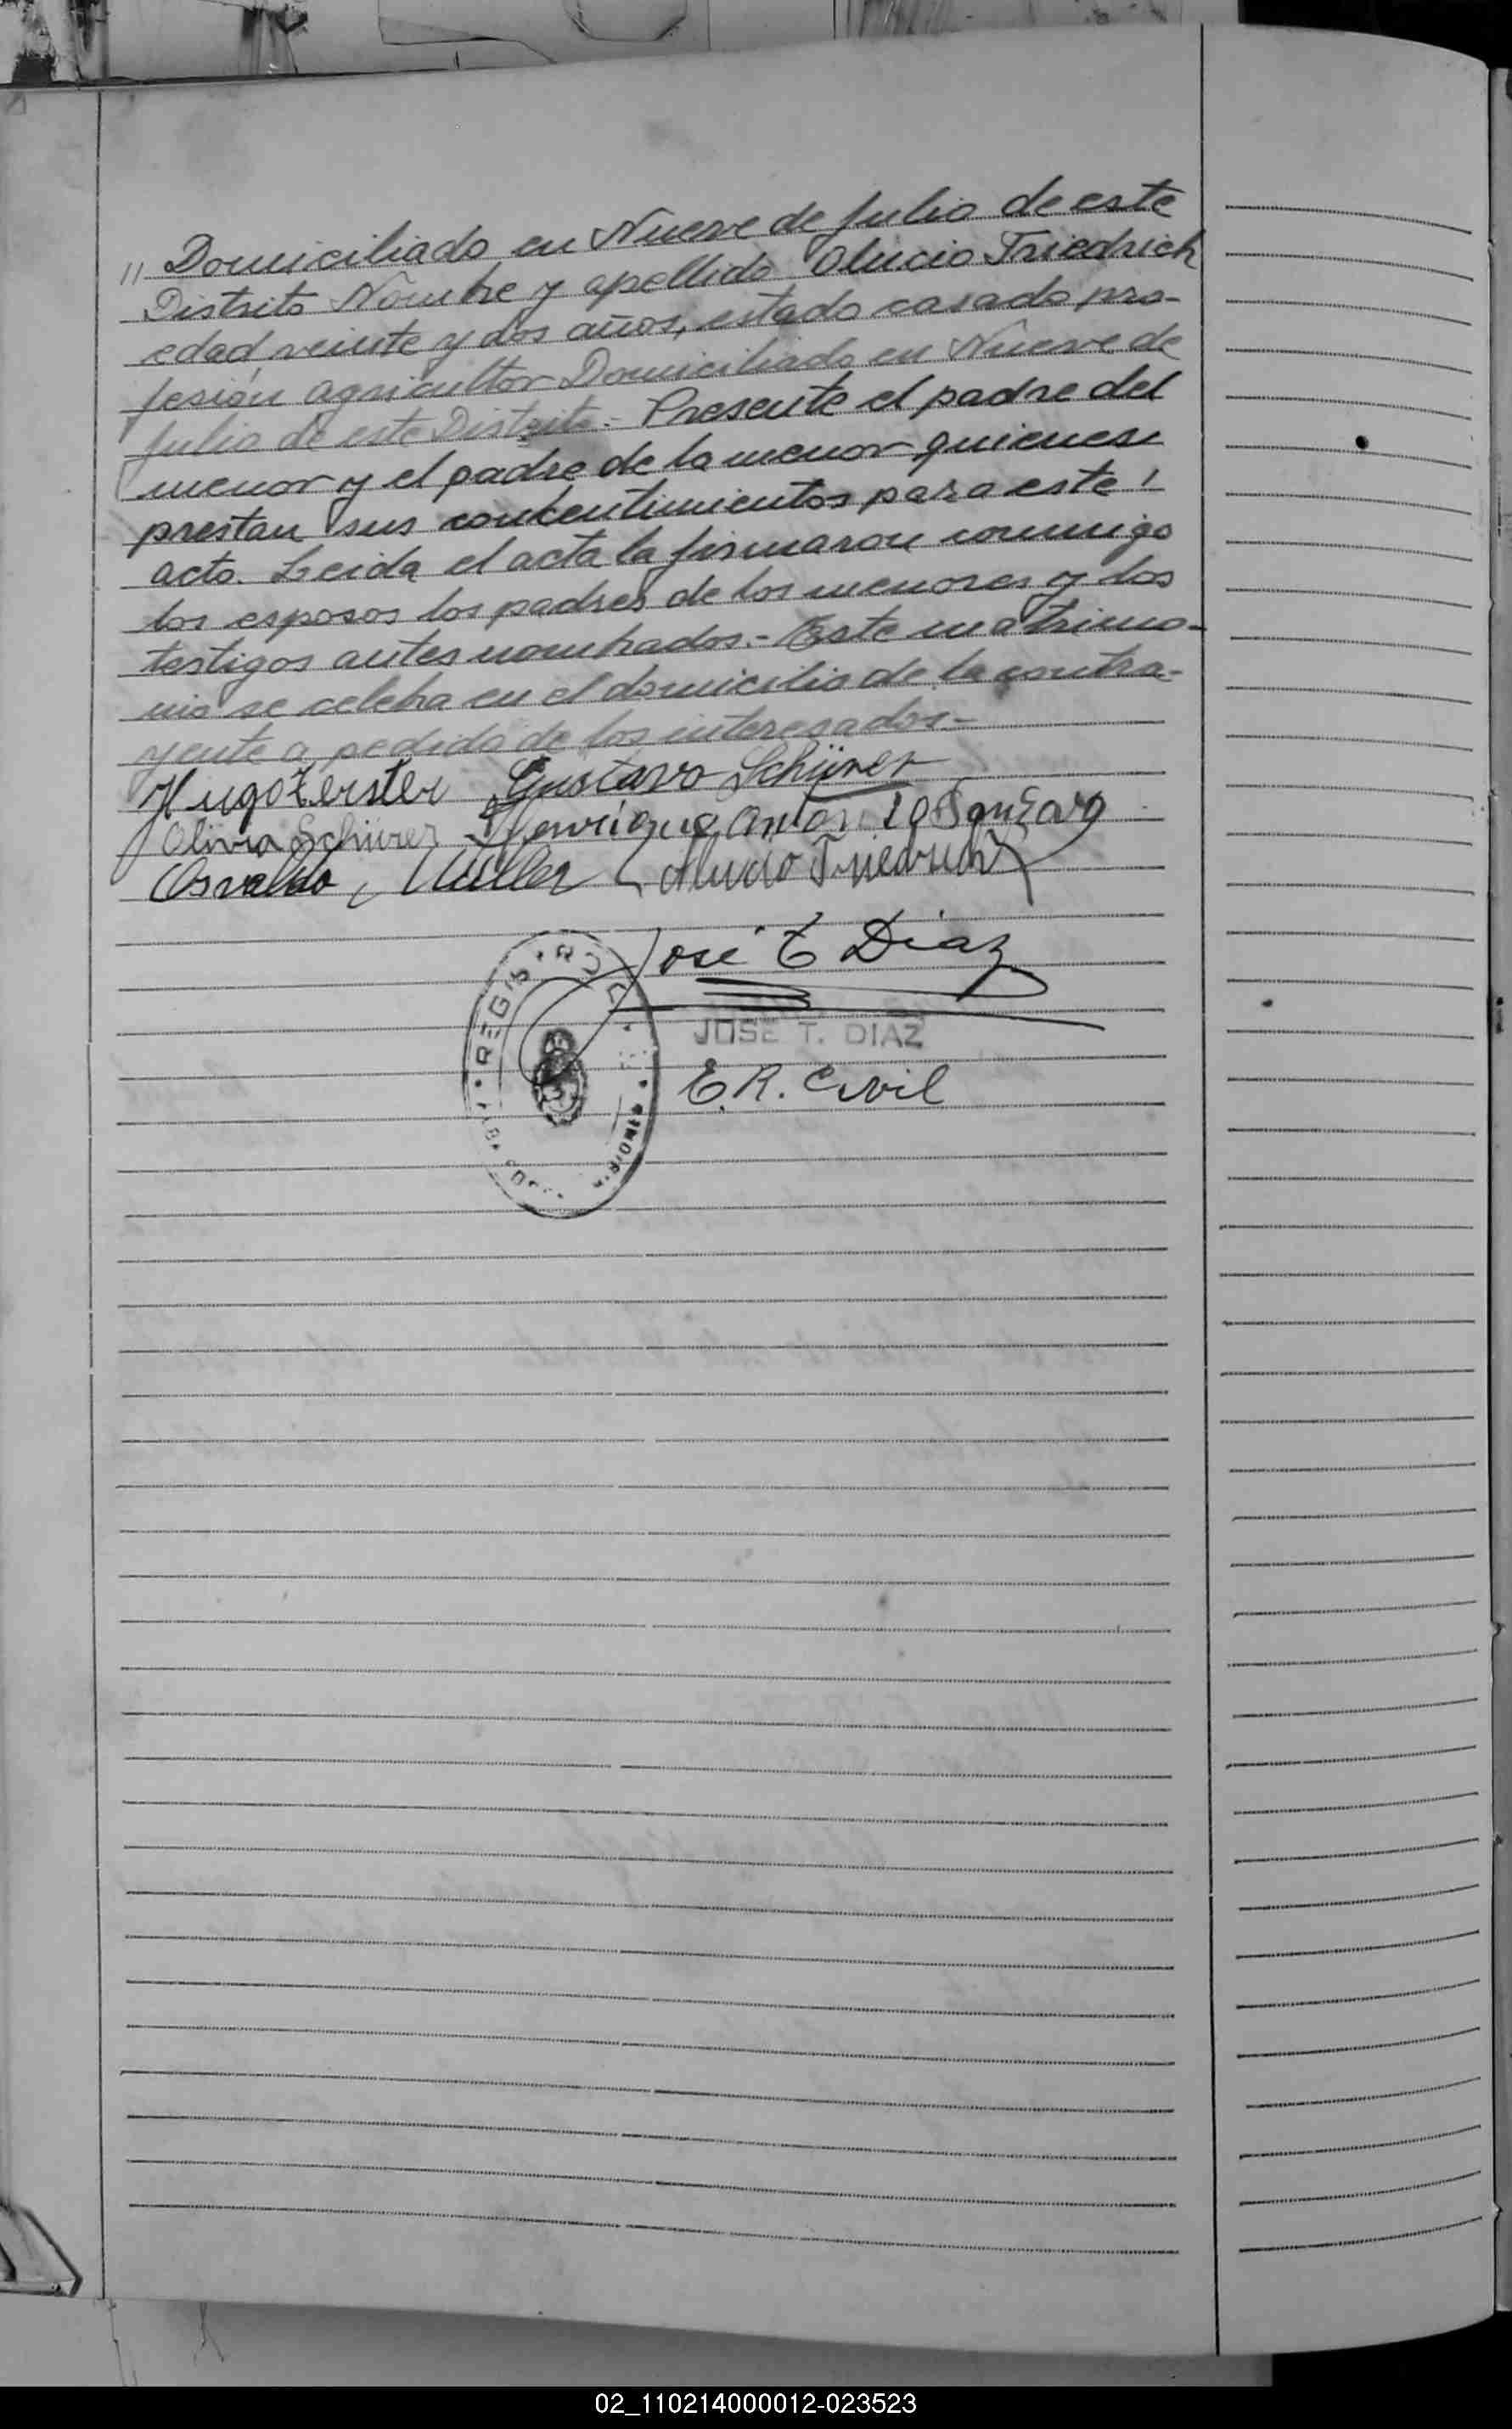 " Domiciliado en Nueve de Julio de este
Distrito Nombre y apellido Alucio Friedrich
edad veinte y dos años, estado casado pro-
fesión agricultor Domiciliado en Nueve de
Julio de este Distrito.- Presente el padre del
menor y el padre de la menor quienes
prestan sus contentimientos para este
acto. Leida el acta la firmaron conmigo
los esposos los padres de los menores y los
testigos antes nombrados.- Este matrimo-
nio se celebra en el domicilio de la contra-
yente a pedido de los interesados.-
Hugo Gustavo Schürer
Olivia Schürer Henrique
Osvaldo Müller Alucio Friedrich
José T Diaz
REGIS
JOSE T. DIAZ
E.R. Civil
MISIONES
02_110214000012-023523